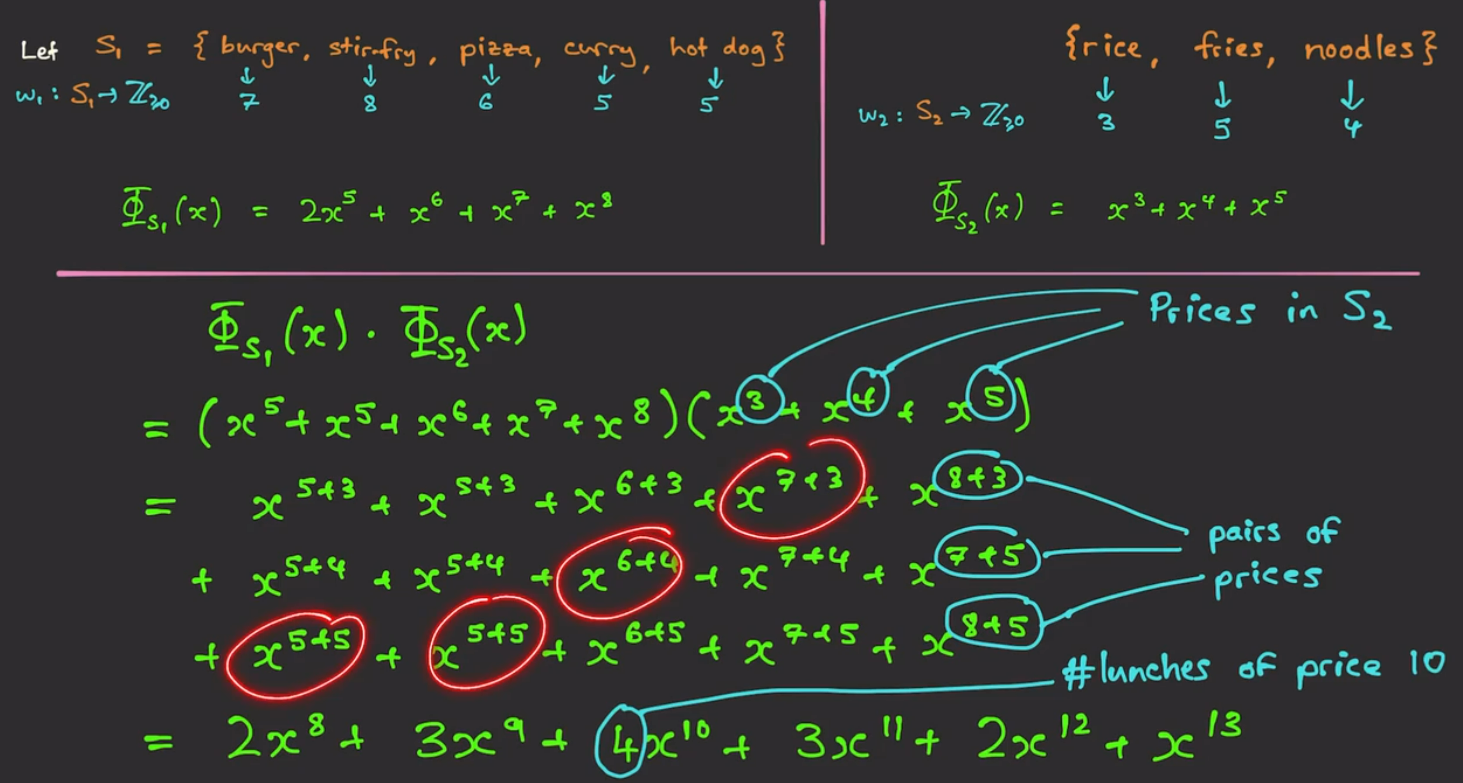 Let S₁ = { burger, stir-fry, pizza, curry, hot dog }
↓ ↓ ↓ ↓ ↓
w₁ : S₁ → ℤ≥0 7 8 6 5 5
Φ_S₁(x) = 2x⁵ + x⁶ + x⁷ + x⁸
{rice, fries, noodles}
↓ ↓ ↓
w₂ : S₂ → ℤ≥0 3 5 4
Φ_S₂(x) = x³ + x⁴ + x⁵
Φ_S₁(x) · Φ_S₂(x)
Prices in S₂
= (x⁵ + x⁵ + x⁶ + x⁷ + x⁸)(x³ + x⁴ + x⁵)
= x⁵⁺³ + x⁵⁺³ + x⁶⁺³ + x⁷⁺³ + x⁸⁺³
+ x⁵⁺⁴ + x⁵⁺⁴ + x⁶⁺⁴ + x⁷⁺⁴ + x⁷⁺⁵
+ x⁵⁺⁵ + x⁵⁺⁵ + x⁶⁺⁵ + x⁷⁺⁵ + x⁸⁺⁵
pairs of
prices
#lunches of price 10
= 2x⁸ + 3x⁹ + 4x¹⁰ + 3x¹¹ + 2x¹² + x¹³